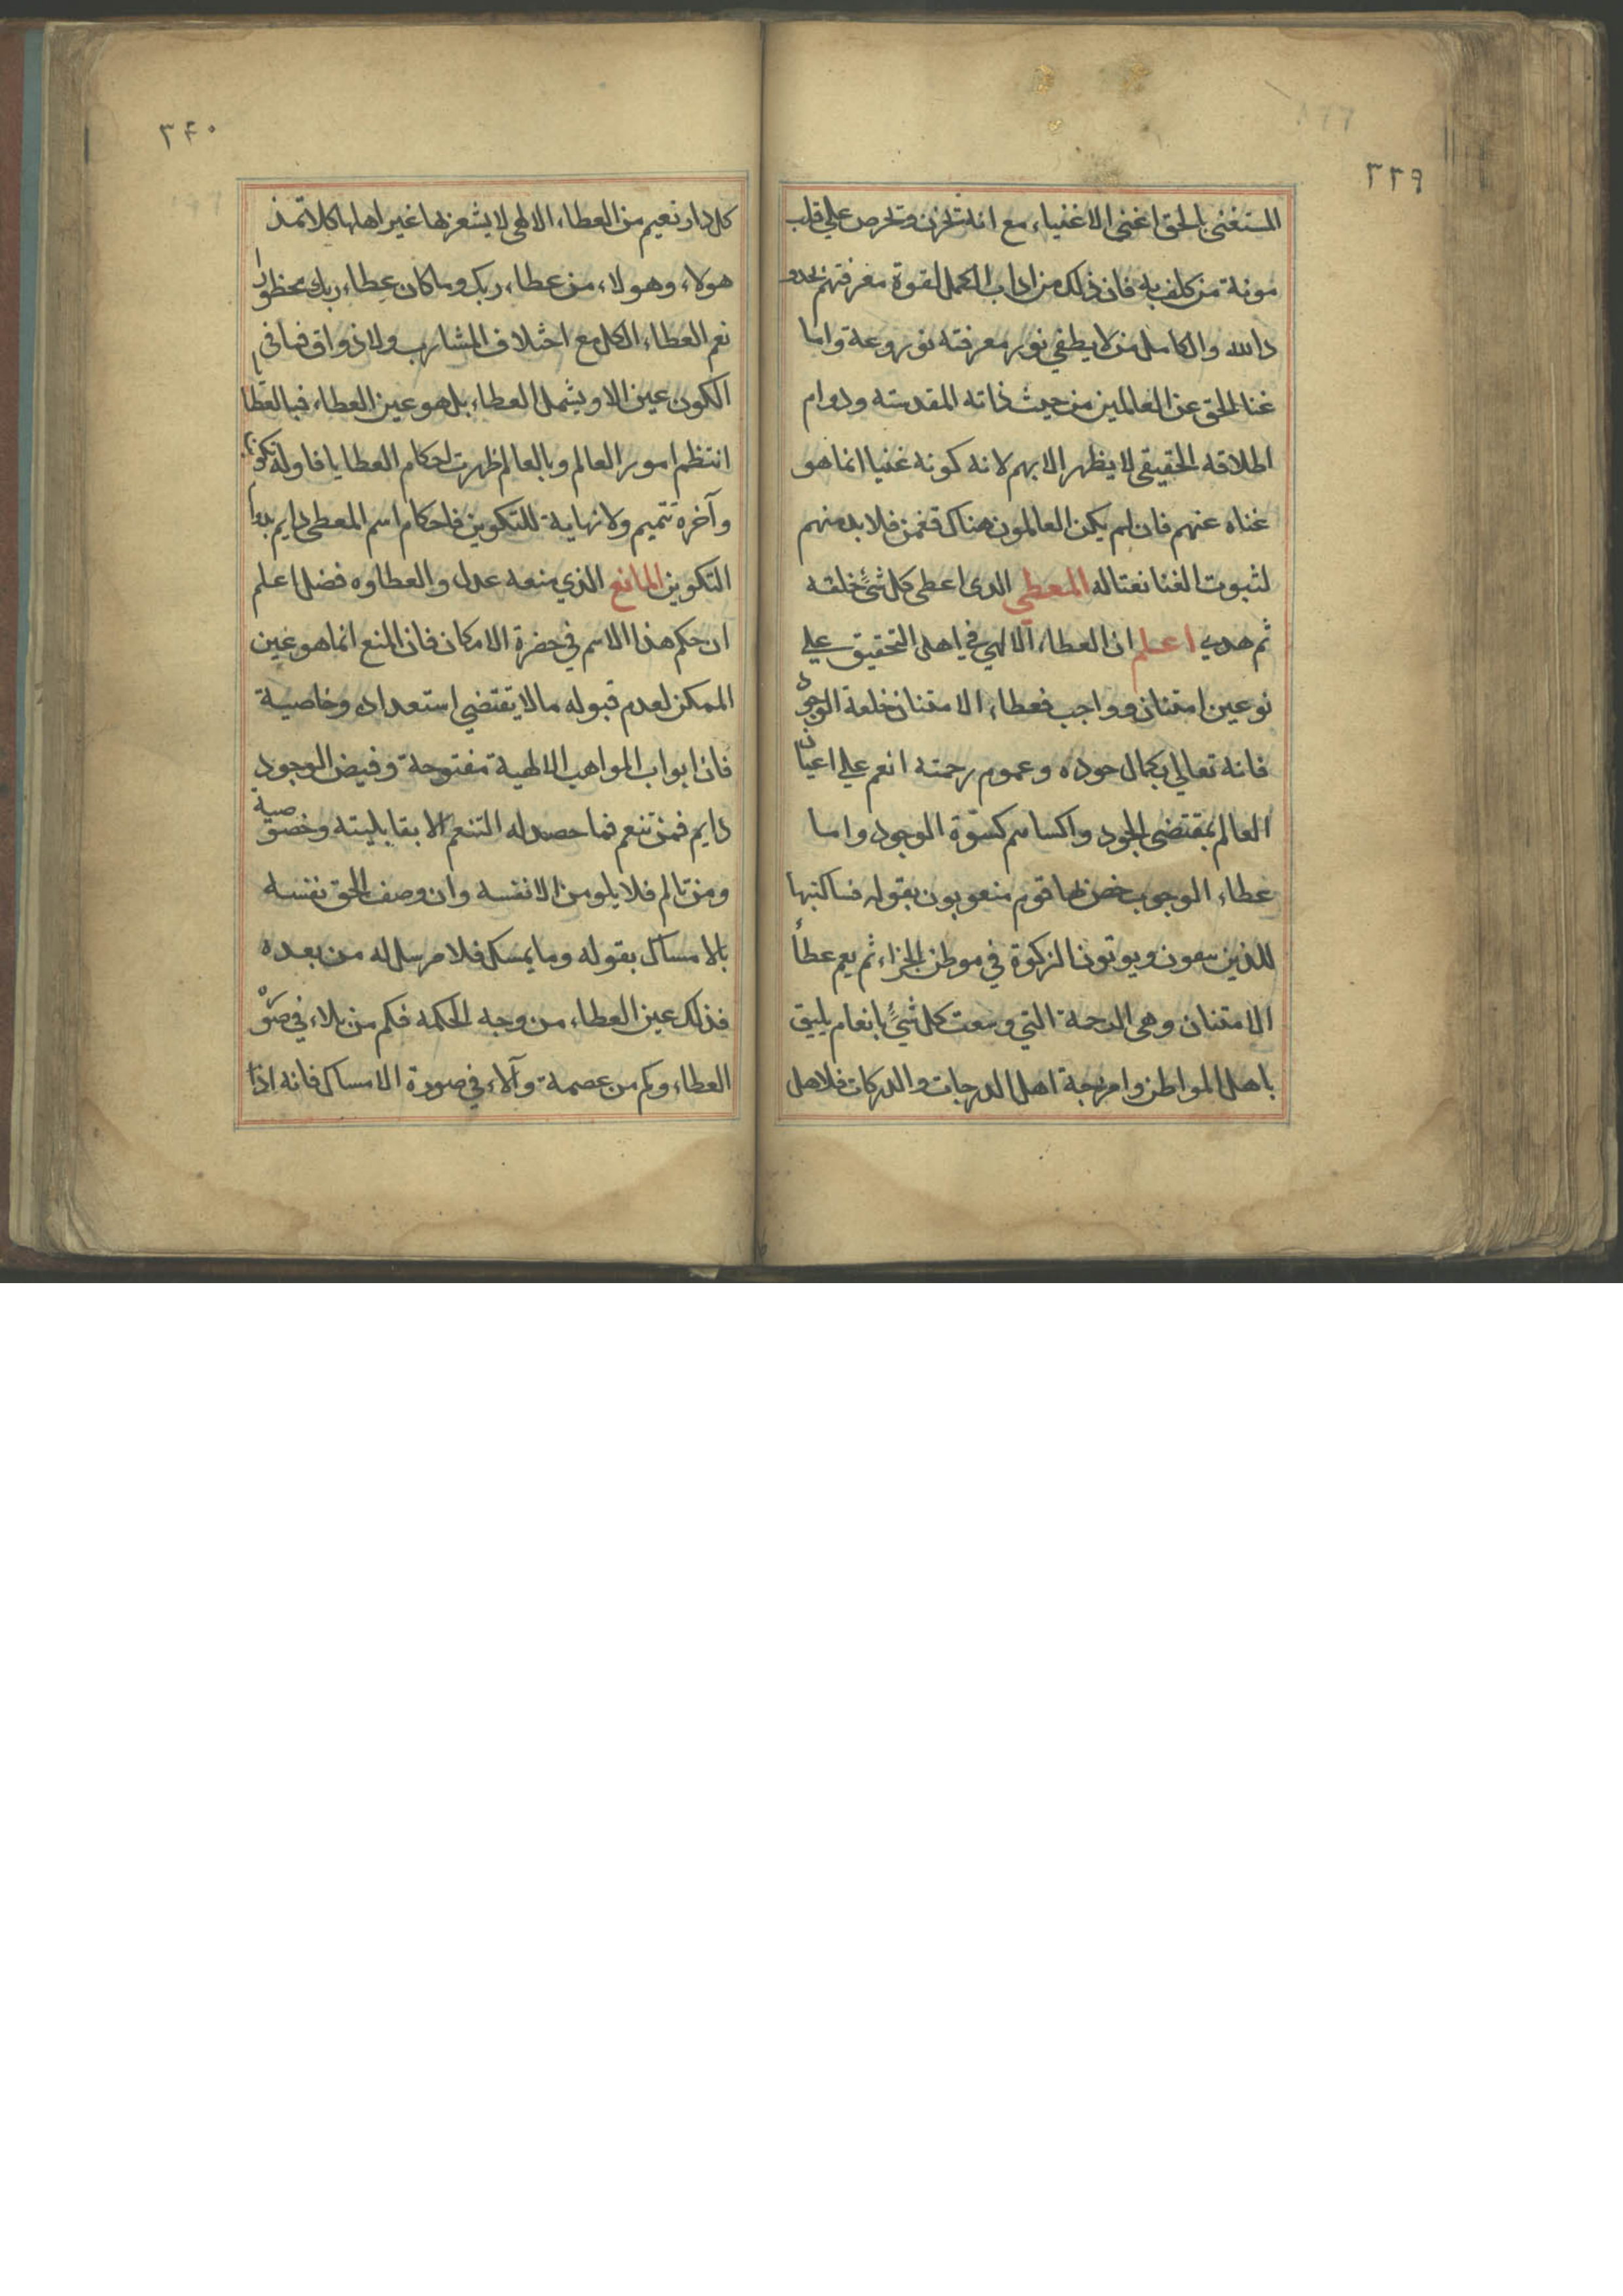 ٣٣٩
المستغنى بالحق اغنى الاغنياء مع انه تخزن وتحرص علي قلب
مونة من كلف به فان ذلك من اداب الكمل لقوة معرفتهم بحدو
د الله والكامل من لا يطفي نور معرفته نور ورعه واما
غنا الحق عن العالمين من حيث ذاته المقدسته ودوام
اطلاقه الحقيقى لا يظهر الا بهم لانه كونه غنيا انما هو
غناه عنهم فان لم يكن العالمون هناك فعمن فلا بد منهم
لثبوت الغنا نعتا له المعطي الدى اعطى كل شئ خلقه
ثم هدى اعلم ان العطاء الالهي في اهل التحقيق علي
نوعين امتنان وواجب فعطاء الامتنان خلعة الوجود
فانه تعالي بكمال جوده وعموم رحمته انعم علي اعيان
العالم بمقتضى الجود واكساهم كسوة الوجود واما
عطاء الوجوب خص لها قوم منعوتون بقوله فساكتبها
للذين يتقون ويوتون الزكوة في موطن الجزاء ثم يعم عطأ
الامتنان وهى الرحمة التي وسعت كل شئ بانعام يليق
باهل المواطن وامزجة اهل الدرجات والدركات فلاهل
٣٤٠
كل دار نعيم من العطاء الالهى لا يشعر بها غير اهلها كلا نمد
هولاء وهولاء من عطاء ربك وما كان عطاء ربك محظورا
نعم العطاء الكل مع اختلاف المشارب ولاذواق فما في
الكون عين الا ويشمل العطاء بل هو عين العطاء فبالعطا
انتظم امور العالم وبالعالم ظهرت احكام العطايا فاوله تكوين
وآخره تتميم ولا نهاية للتكوين فاحكام اسم المعطى دايم بدوام
التكوين المانع الذي منعه عدل والعطاوه فضل اعلم
ان حكم هذا الاسم في حضرة الامكان فان المنع انما هو عين
الممكن لعدم قبوله ما لا يقتضي استعداده وخاصية
فان ابواب المواهب الالهية مفتوحة وفيض الوجود
دايم فمن تنعم فما حصد له التنعم الا بقابليته وخصوصية
ومن تالم فلا يلومن الا نفسه وان وصف الحق نفسه
بالامساك بقوله وما يمسك فلا مرسل له من بعده
فذلك عين العطاء من وجه الحكمه فكم من بلاء في صورة
العطاء وكم من عصمة وآلاء في صورة الامساك فانه اذا